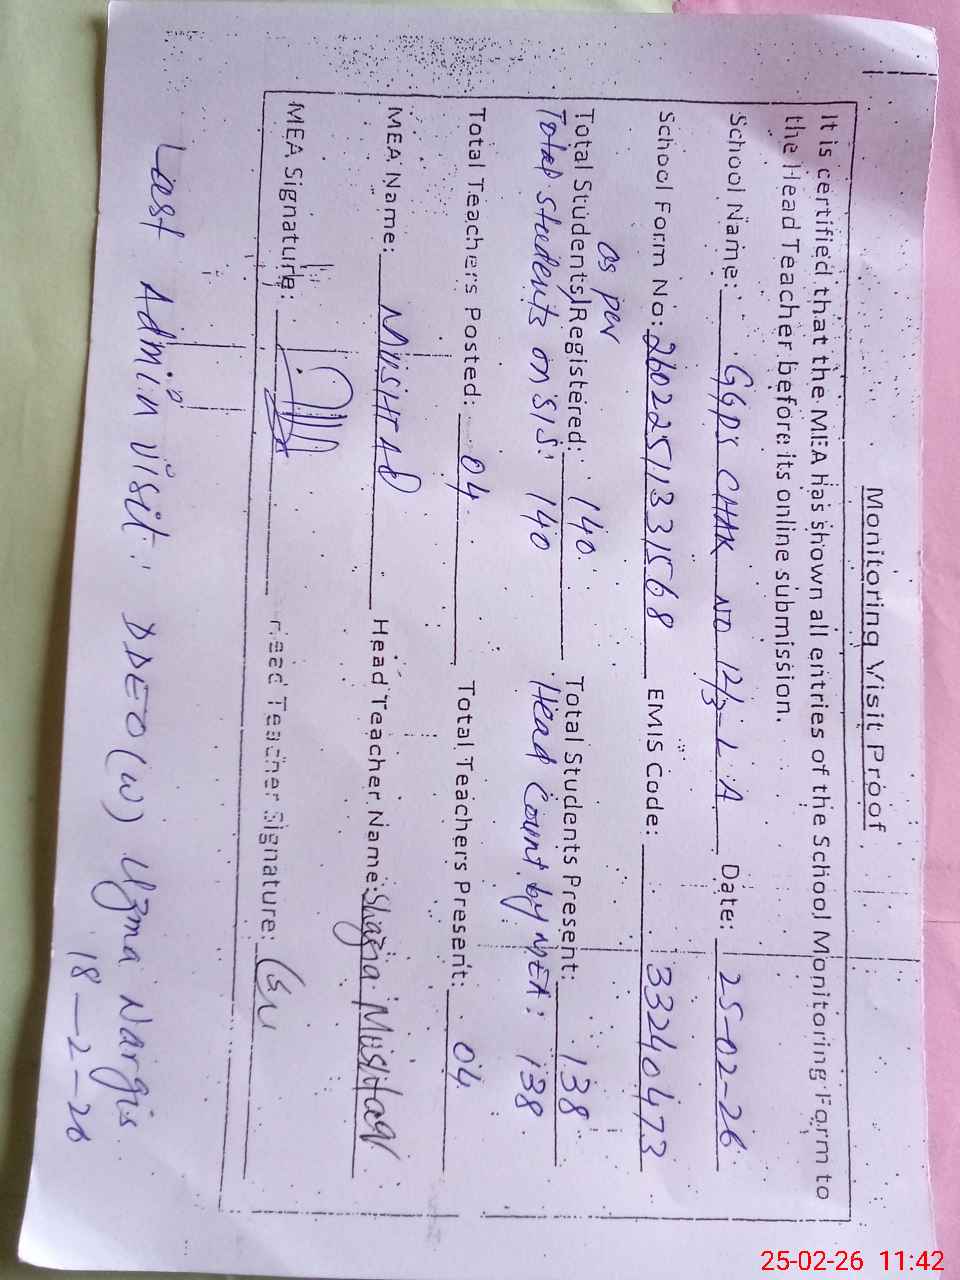 Monitoring Visit Proof
It is certified that the MEA has shown all entries of the School Monitoring Form to
the Head Teacher before its online submission.
School Name: GGPS CHAK NO 12/3-L A Date: 25-02-26
School Form No: 26022511331568 EMIS Code: 33240473
as per
Total Students Registered: 140 Total Students Present: 138
Total students on SIS: 140 Head Count by MEA: 138
Total Teachers Posted: 04 Total Teachers Present: 04
MEA Name: Head Teacher Name: Shazia Mushtaq
MEA Signature: Head Teacher Signature:
Last Admin Visit: DDEO (W) Uzma Nargis
18-2-26
25-02-26 11:42